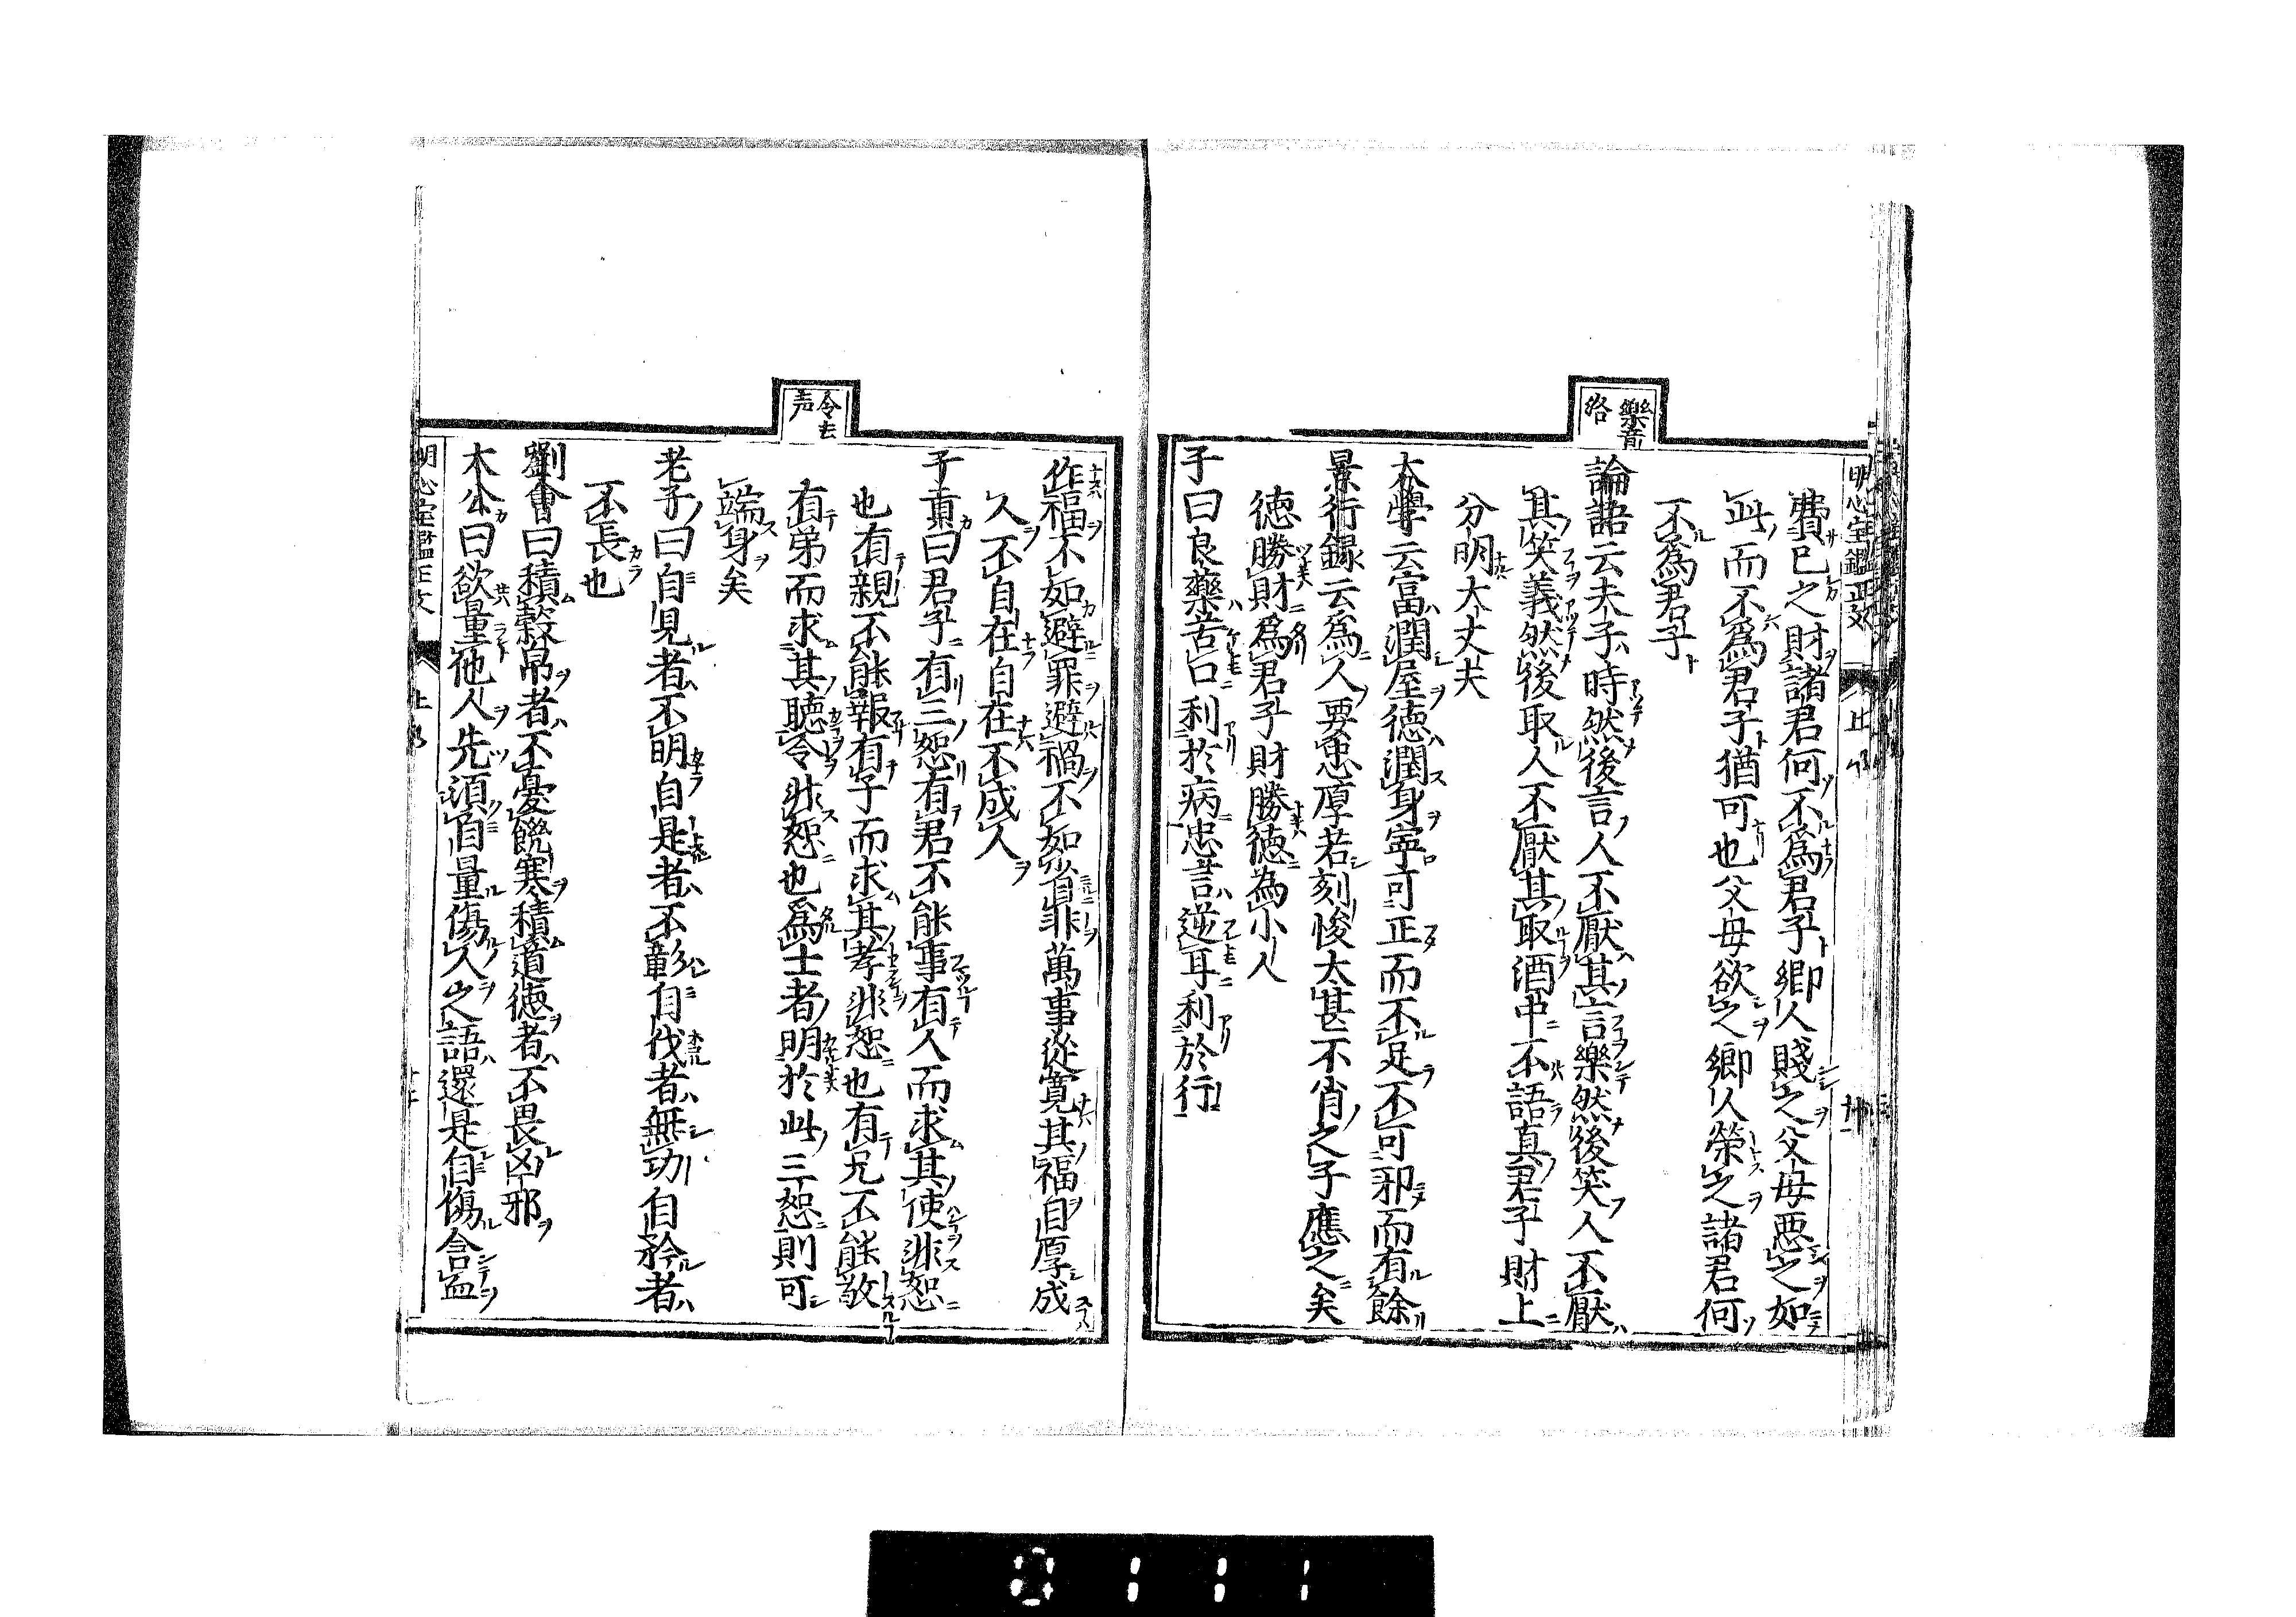 樂音
洛
明心宝鑑正文
上
費已之財諸君何不爲君子鄉人賤之父母惡之如
此而不爲君子猶可也父母欲之鄉人榮之諸君何
不爲君子
論語云夫子時然後言人不厭其言樂然後笑人不厭
其笑義然後取人不厭其取酒中不語真君子財上
分明大丈夫
大學云富潤屋德潤身寧可正而不足不可邪而有餘
景行録云爲人要忠厚若刻悛太甚不肖之子應之矣
德勝財爲君子財勝德為小人
子曰良藥苦口利於病忠言逆耳利於行
令去
声
作福不如避罪避禍不如省非萬事從寬其福自厚成
人不自在自在不成人
子貢曰君子有三恕有君不能事有人而求其使非恕
也有親不能報有子而求其孝非恕也有兄不能敬
有弟而求其聽令非恕也爲士者明於此三恕則可
端身矣
老子曰自見者不明自是者不彰自伐者無功自矜者
不長也
劉會曰積穀帛者不憂饑寒積道德者不畏凶邪
太公曰欲量他人先須自量傷人之語還是自傷含血
明心宝鑑正文
上
0111